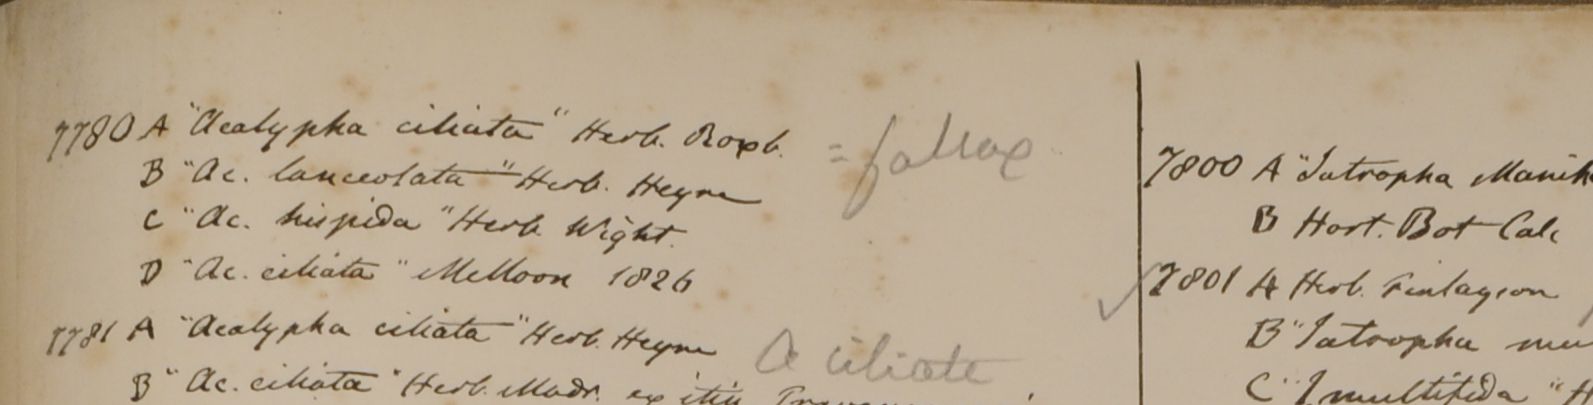 7780 A "Acalypha ciliata" Herb. Roxb. = fallax
B "Ac. lanceolata" Herb. Heyne
C "Ac. hispida" Herb. Wight.
D "Ac. ciliata" McMoon 1826
7781 A "Acalypha ciliata" Herb. Heyne A ciliata
B "Ac. ciliata" Herb. Madr. ex itin
7800 A "Jatropha Manih
B Hort. Bot Calc
7801 A Herb. Finlayson
B "Jatropha mu
C "J multifida" H